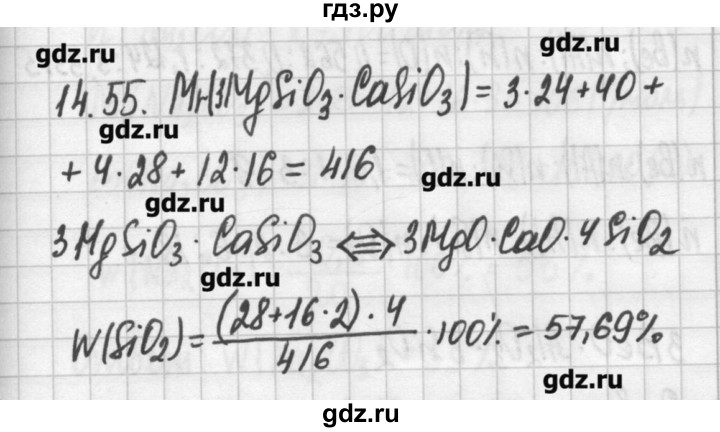 гдз.ру
gdz.ru gdz.ru
14.55. Mr(3MgSiO₃·CaSiO₃) = 3·24+40+
gdz.ru
+ 4·28 + 12·16 = 416
gdz.ru
gdz.ru
3MgSiO₃·CaSiO₃ ⇔ 3MgO·CaO·4SiO₂
gdz.ru
W(SiO₂) = (28+16·2)·4 / 416 ·100% = 57,69%
gdz.ru
gdz.ru